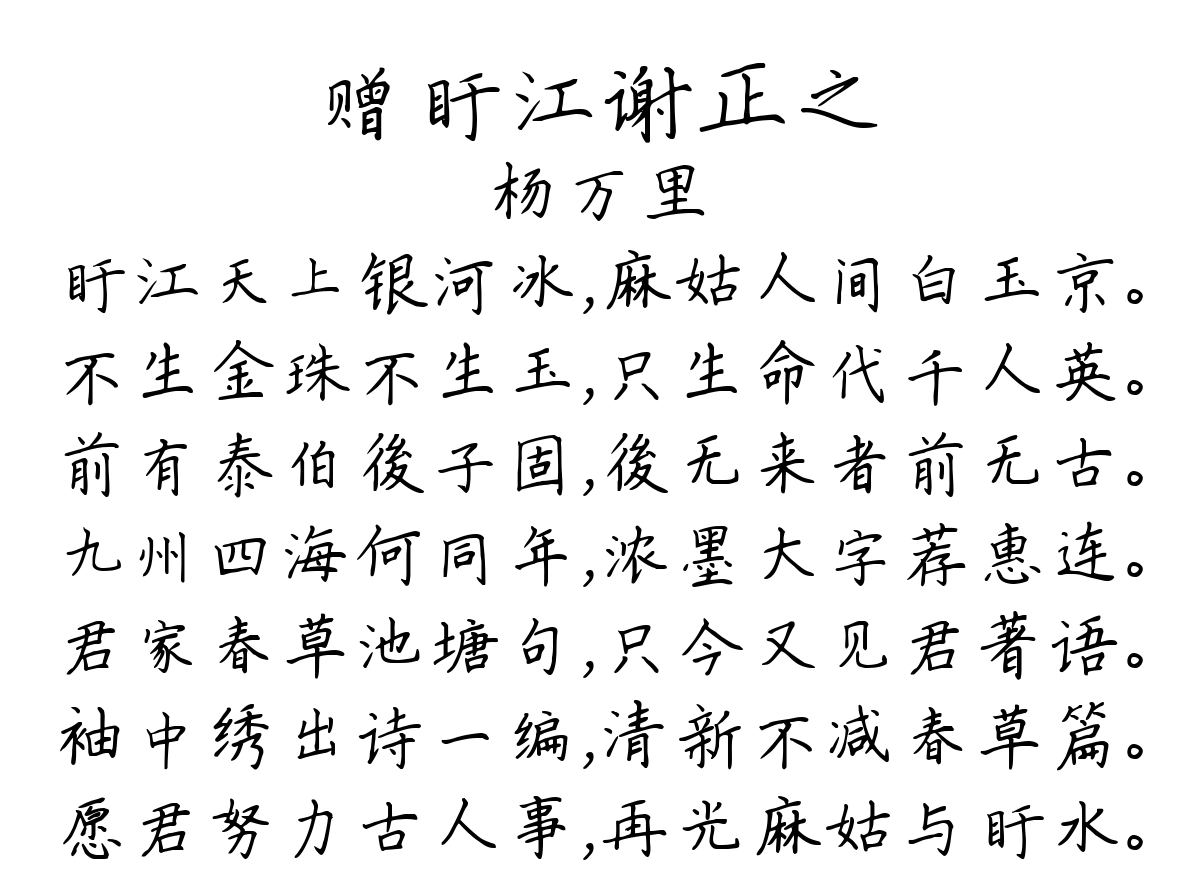 赠盱江谢正之
杨万里
盱江天上银河冰,麻姑人间白玉京。
不生金珠不生玉,只生命代千人英。
前有泰伯後子固,後无来者前无古。
九州四海何同年,浓墨大字荐惠连。
君家春草池塘句,只今又见君著语。
袖中绣出诗一编,清新不减春草篇。
愿君努力古人事,再光麻姑与盱水。